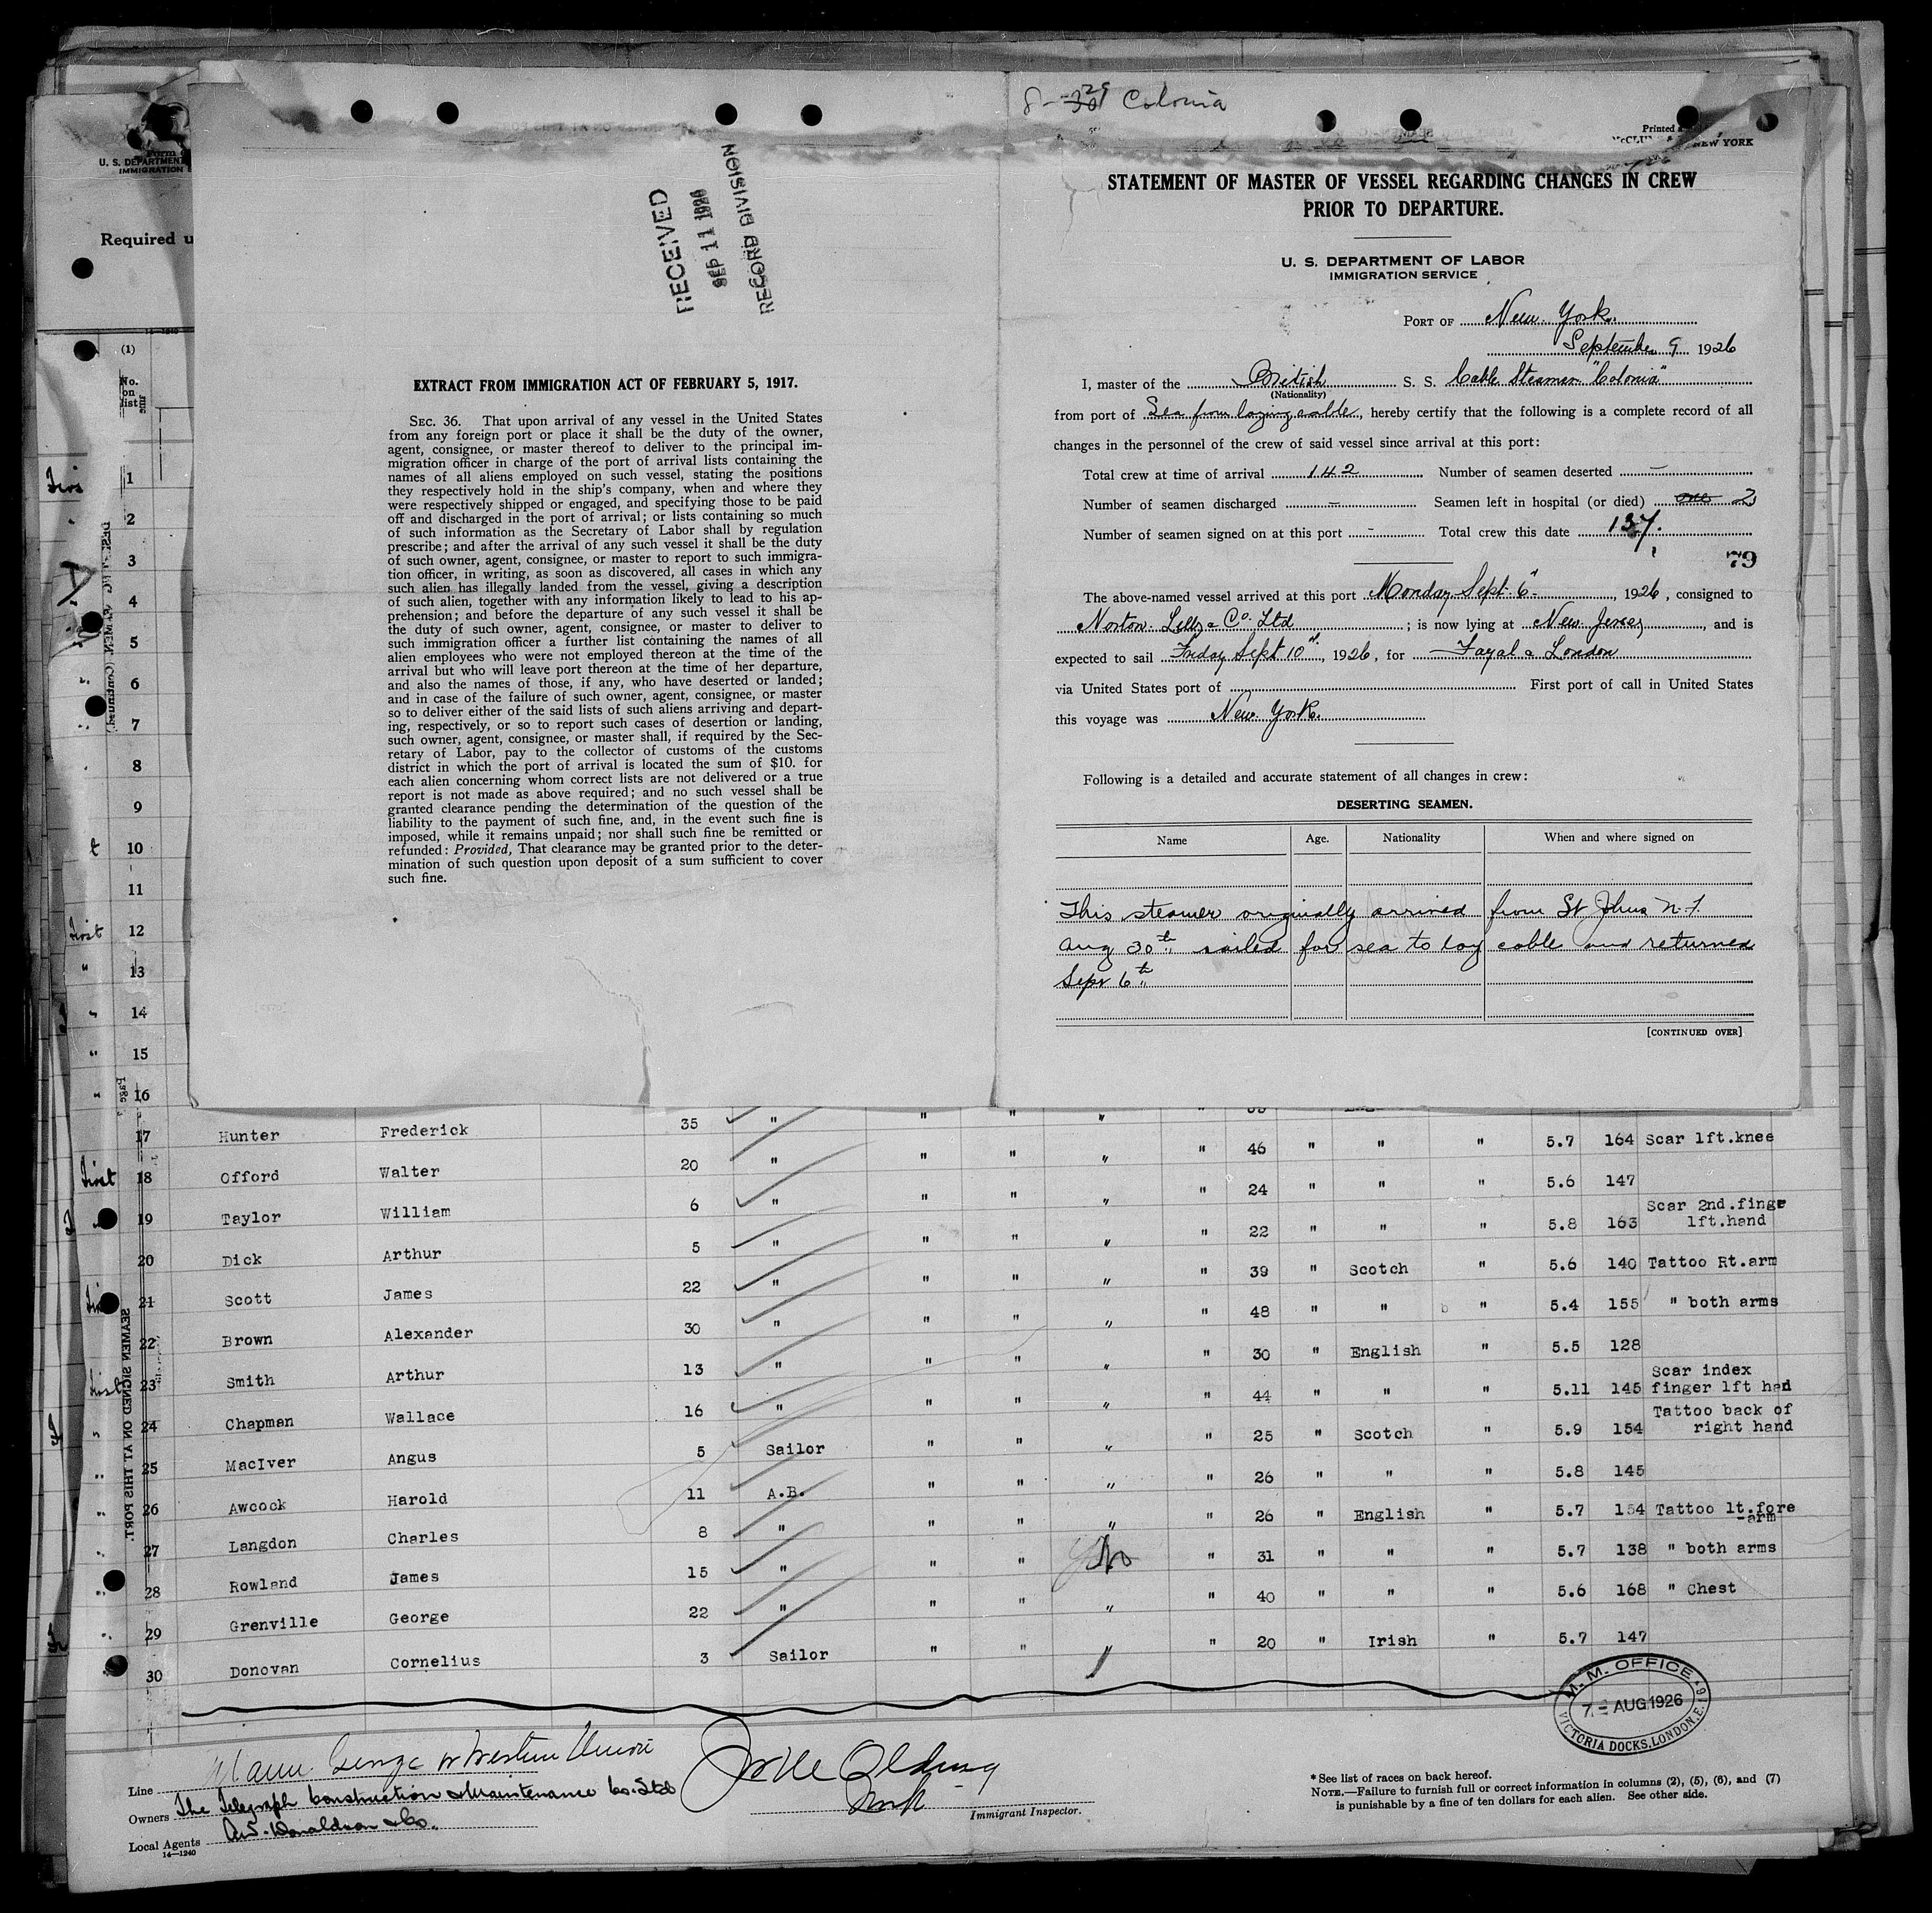 8-30 29 Colonia
Printed a
NEW YORK
U. S. DEPARTMENT
IMMIGRATION
Required u
(1)
No.
on
list
RECEIVED
SEP 11 1926
RECORD DIVISION
EXTRACT FROM IMMIGRATION ACT OF FEBRUARY 5, 1917.
SEC. 36. That upon arrival of any vessel in the United States
from any foreign port or place it shall be the duty of the owner,
agent, consignee, or master thereof to deliver to the principal im-
migration officer in charge of the port of arrival lists containing the
names of all aliens employed on such vessel, stating the positions
they respectively hold in the ship's company, when and where they
were respectively shipped or engaged, and specifying those to be paid
off and discharged in the port of arrival; or lists containing so much
of such information as the Secretary of Labor shall by regulation
prescribe; and after the arrival of any such vessel it shall be the duty
of such owner, agent, consignee, or master to report to such immigra-
tion officer, in writing, as soon as discovered, all cases in which any
such alien has illegally landed from the vessel, giving a description
of such alien, together with any information likely to lead to his ap-
prehension; and before the departure of any such vessel it shall be
the duty of such owner, agent, consignee, or master to deliver to
such immigration officer a further list containing the names of all
alien employees who were not employed thereon at the time of the
arrival but who will leave port thereon at the time of her departure,
and also the names of those, if any, who have deserted or landed;
and in case of the failure of such owner, agent, consignee, or master
so to deliver either of the said lists of such aliens arriving and depart-
ing, respectively, or so to report such cases of desertion or landing,
such owner, agent, consignee, or master shall, if required by the Sec-
retary of Labor, pay to the collector of customs of the customs
district in which the port of arrival is located the sum of $10. for
each alien concerning whom correct lists are not delivered or a true
report is not made as above required; and no such vessel shall be
granted clearance pending the determination of the question of the
liability to the payment of such fine, and, in the event such fine is
imposed, while it remains unpaid; nor shall such fine be remitted or
refunded: Provided, That clearance may be granted prior to the deter-
mination of such question upon deposit of a sum sufficient to cover
such fine.
STATEMENT OF MASTER OF VESSEL REGARDING CHANGES IN CREW
PRIOR TO DEPARTURE.
U. S. DEPARTMENT OF LABOR
IMMIGRATION SERVICE
PORT OF New York.
September 9 1926
I, master of the British S. S. Cable Steamer "Colonia"
(Nationality)
from port of Sea from laying cable, hereby certify that the following is a complete record of all
changes in the personnel of the crew of said vessel since arrival at this port:
Total crew at time of arrival 142 Number of seamen deserted —
Number of seamen discharged — Seamen left in hospital (or died) one 2
Number of seamen signed on at this port - Total crew this date 137.
79
The above-named vessel arrived at this port Monday Sept. 6", 1926, consigned to
Norton. Lilly & Co. Ltd; is now lying at New Jersey, and is
expected to sail Friday Sept 10", 1926, for Fayal & London
via United States port of First port of call in United States
this voyage was New York.
Following is a detailed and accurate statement of all changes in crew:
DESERTING SEAMEN.
Name Age. Nationality When and where signed on
This steamer originally arrived from St Johns N.F.
Aug 30th, sailed for sea to lay cable and returned
Sept 6th
[CONTINUED OVER]
1
2
3
4
5
6
7
8
9
10
11
First 12
" 13
" 14
" 15
" 16
17 Hunter Frederick 35 " " " " " 46 " " " 5.7 164 Scar lft.knee
First 18 Offord Walter 20 " " " " " 24 " " " 5.6 147
19 Taylor William 6 " " " " " 22 " " " 5.8 163 Scar 2nd.finge
lft.hand
20 Dick Arthur 5 " " " " " 39 " Scotch " 5.6 140 Tattoo Rt.arm
21 Scott James 22 " " " " " 48 " " " 5.4 155 " both arms
22 Brown Alexander 30 " " " " " 30 " English " 5.5 128
23 Smith Arthur 13 " " " " " 44 " " " 5.11 145 Scar index
finger lft han
24 Chapman Wallace 16 " " " " " 25 " Scotch " 5.9 154 Tattoo back of
right hand
25 MacIver Angus 5 Sailor " " " " 26 " " " 5.8 145
26 Awcock Harold 11 A.B. " " " " 26 " English " 5.7 154 Tattoo lt.fore
-arm
27 Langdon Charles 8 " " " " " 31 " " " 5.7 138 " both arms
28 Rowland James 15 " " " No " 40 " " " 5.6 168 " Chest
29 Grenville George 22 " " " " " 20 " Irish " 5.7 147
30 Donovan Cornelius 3 Sailor " "
SEAMEN SIGNED ON AT THIS PORT.
M. M. OFFICE
7 - AUG 1926
VICTORIA DOCKS, LONDON, E.16
Line
Owners The Telegraph Construction & Maintenance Co. Ltd
Local Agents Donaldson & Co.
14—1240
Immigrant Inspector.
* See list of races on back hereof.
NOTE.—Failure to furnish full or correct information in columns (2), (5), (6), and (7)
is punishable by a fine of ten dollars for each alien. See other side.